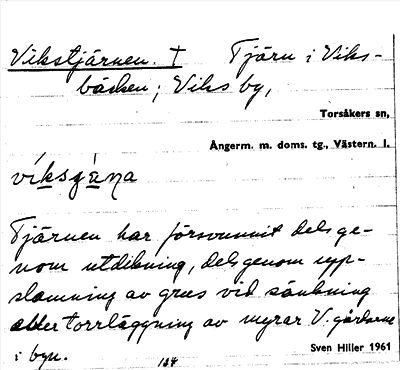 Vikstjärnen. † Tjärn i Viks-
bäcken; Viks by,
Torsåkers sn,
Ångerm. m. doms. tg., Västern. l.
Tjärnen har försvunnit dels ge-
nom utdikning, dels genom upp-
slamning av grus vid sänkning
eller torrläggning av myrar V. gårdarne
i byn.
Sven Hiller 1961